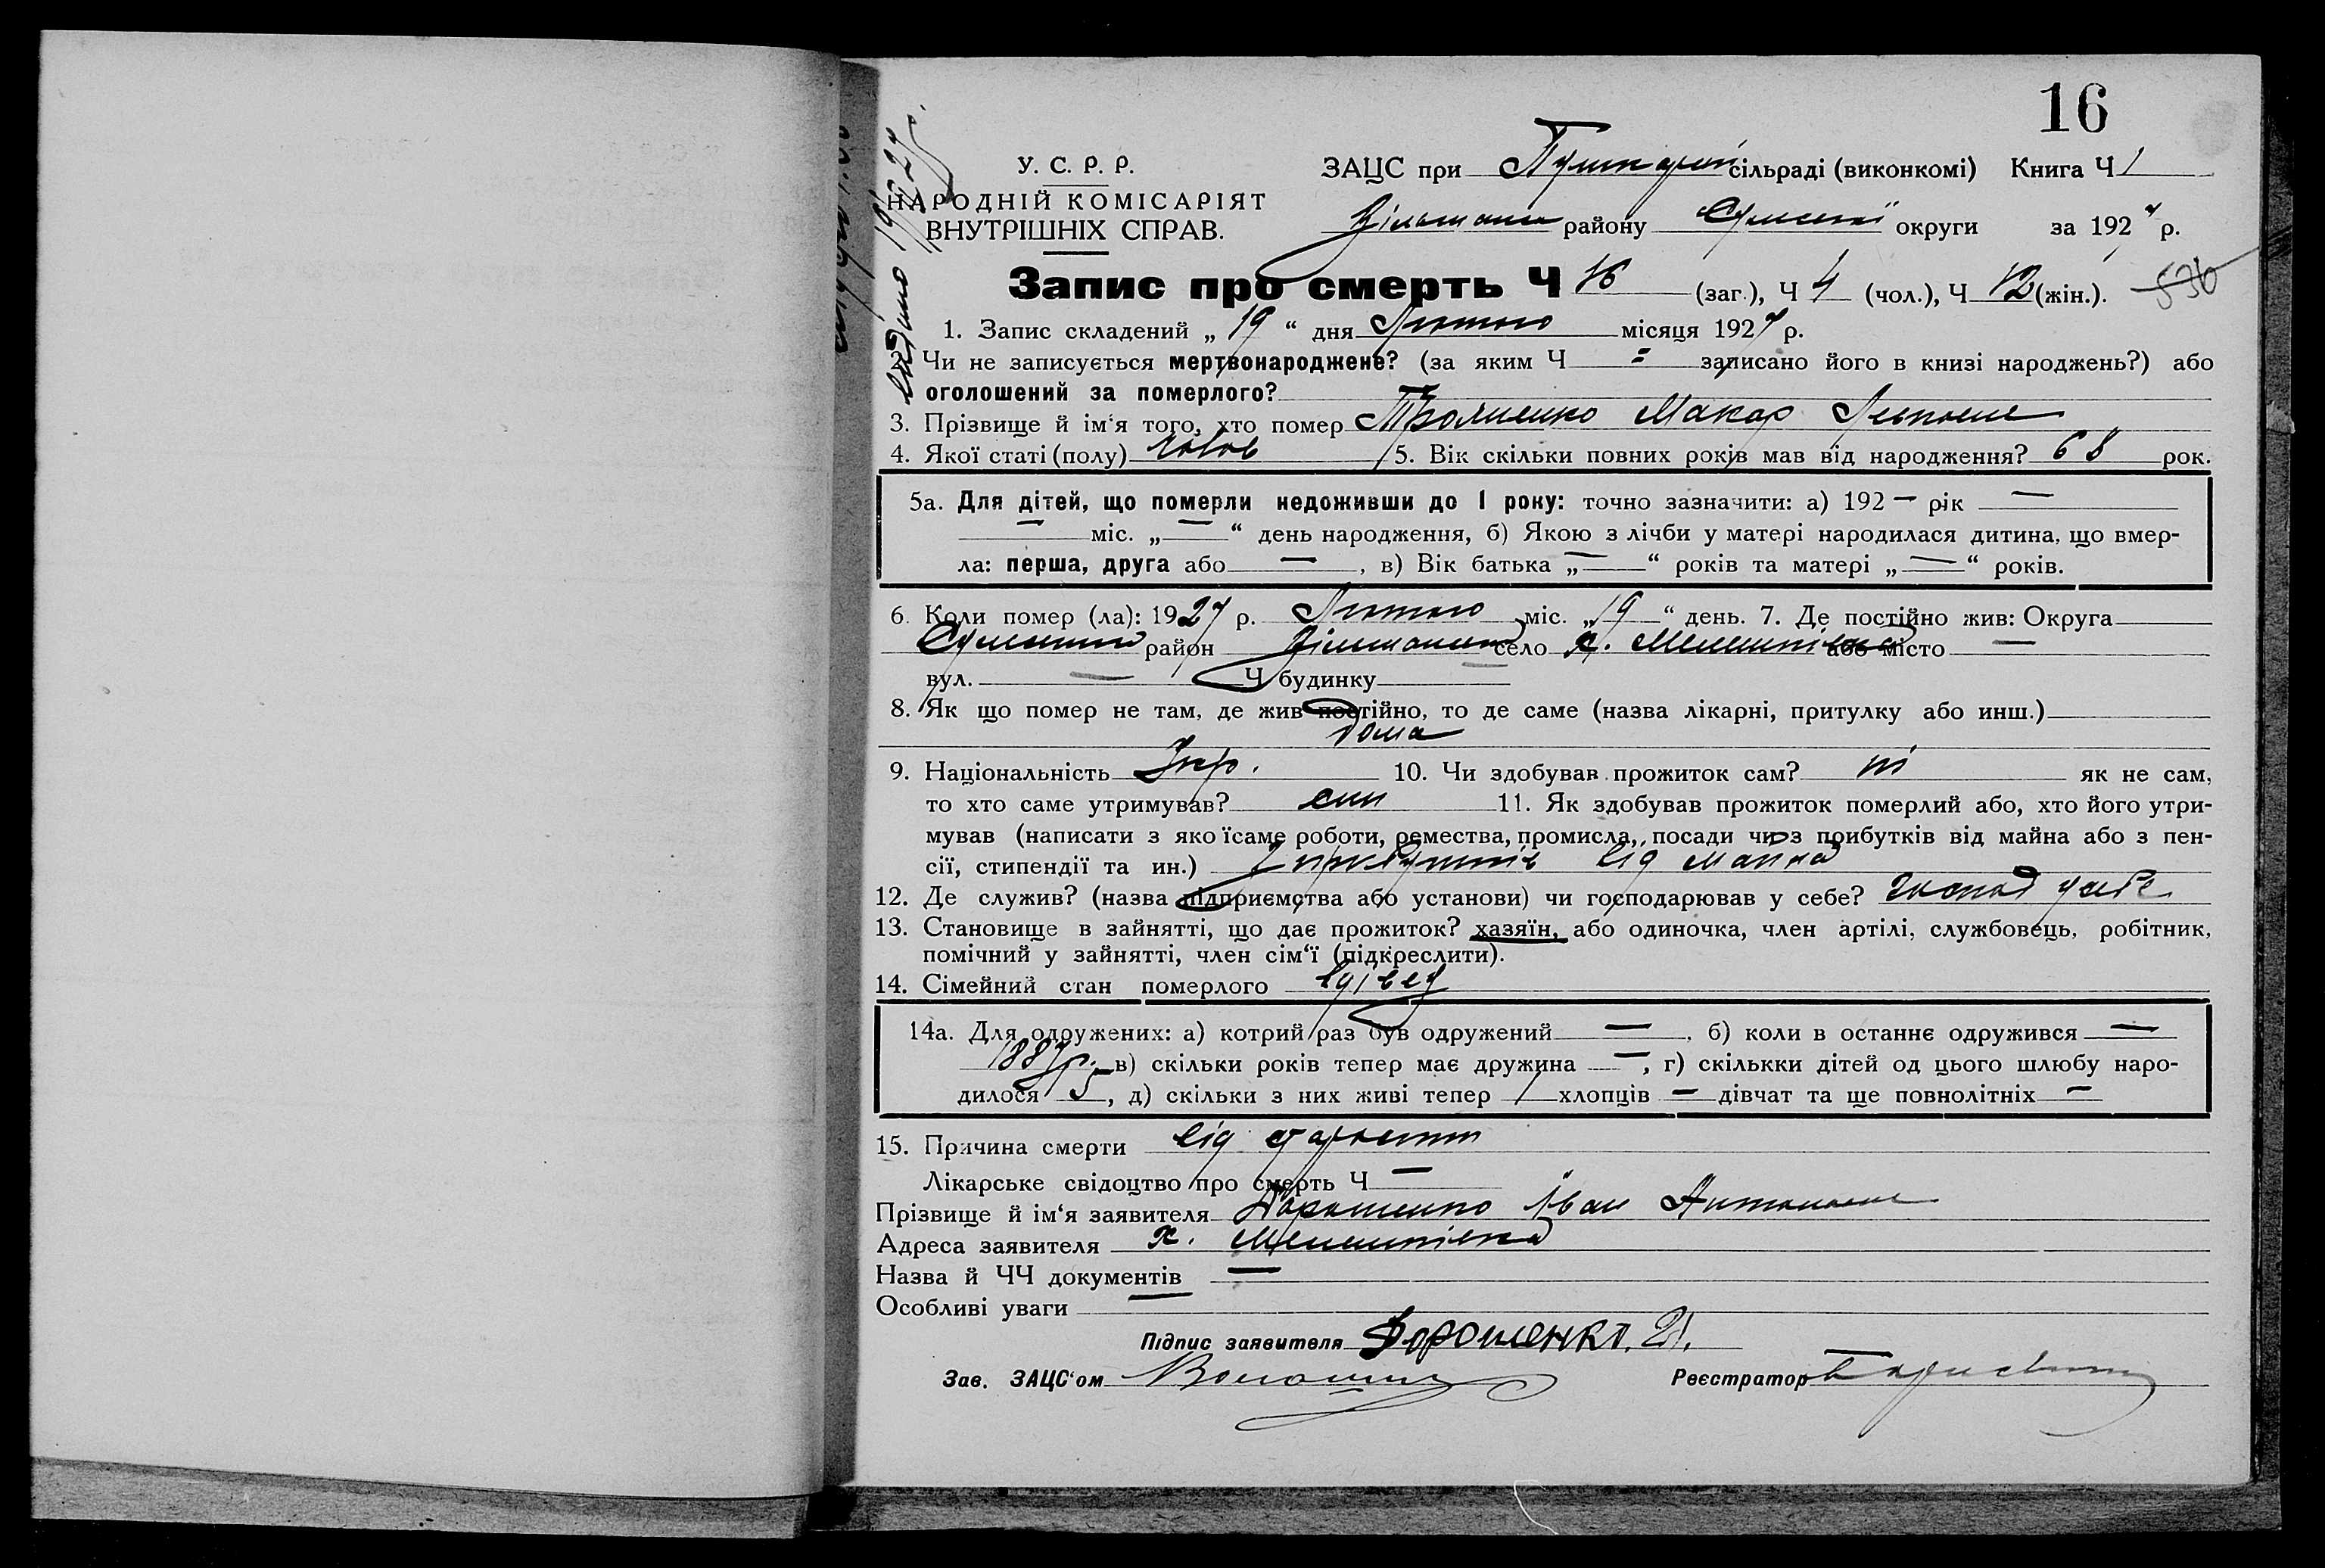 16
У. С. Р. Р.
НАРОДНІЙ КОМІСАРІЯТ
ВНУТРІШНІХ СПРАВ.
ЗАЦС при сільраді (виконкомі) Книга Ч 1
району Сумської округи за 1927 р.
Запис про смерть Ч 16 (заг.), Ч 4 (чол.), Ч 12 (жін.). 536
1. Запис складений „ 19 “ дня Лютого місяця 1927 р.
2. Чи не записується мертвонароджене? (за яким Ч = записано його в книзі народжень?) або
оголошений за померлого?
3. Прізвище й ім‘я того, хто помер Макар
4. Якої статі (полу) чолов 5. Вік скільки повних років мав від народження? 68 рок.
5а. Для дітей, що померли недоживши до 1 року: точно зазначити: а) 192 — рік —
— міс. „ — “ день народження, б) Якою з лічби у матері народилася дитина, що вмер-
ла: перша, друга або — , в) Вік батька „ — “ років та матері „ — “ років.
6. Коли помер (ла): 1927 р. Лютого міс. „ 19 “ день. 7. Де постійно жив: Округа
район село х. або місто —
вул. — Ч будинку —
8. Як що помер не там, де жив постійно, то де саме (назва лікарні, притулку або инш.)
дома
9. Національність Укр. 10. Чи здобував прожиток сам? ні як не сам,
то хто саме утримував? син 11. Як здобував прожиток померлий або, хто його утри-
мував (написати з якоїсаме роботи, ремества, промисла, посади чи з прибутків від майна або з пен-
сії, стипендії та ин.) з прибутків від майна
12. Де служив? (назва підприємства або установи) чи господарював у себе? господ у себе
13. Становище в зайнятті, що дає прожиток? хазяїн, або одиночка, член артілі, службовець, робітник,
помічний у зайнятті, член сім‘ї (підкреслити).
14. Сімейний стан померлого вдівец
14а. Для одружених: а) котрий раз був одружений — , б) коли в останнє одружився —
1887 р. в) скільки років тепер має дружина — , г) скількки дітей од цього шлюбу наро-
дилося 5 , д) скільки з них живі тепер 1 хлопців — дівчат та ще повнолітніх —
15. Причина смерти від старости
Лікарське свідоцтво про смерть Ч —
Прізвище й ім‘я заявителя Дорошенко Іван Антонович
Адреса заявителя х.
Назва й ЧЧ документів —
Особливі уваги —
Підпис заявителя Дорошенко. И.
Зав. ЗАЦС‘ом
Реєстратор